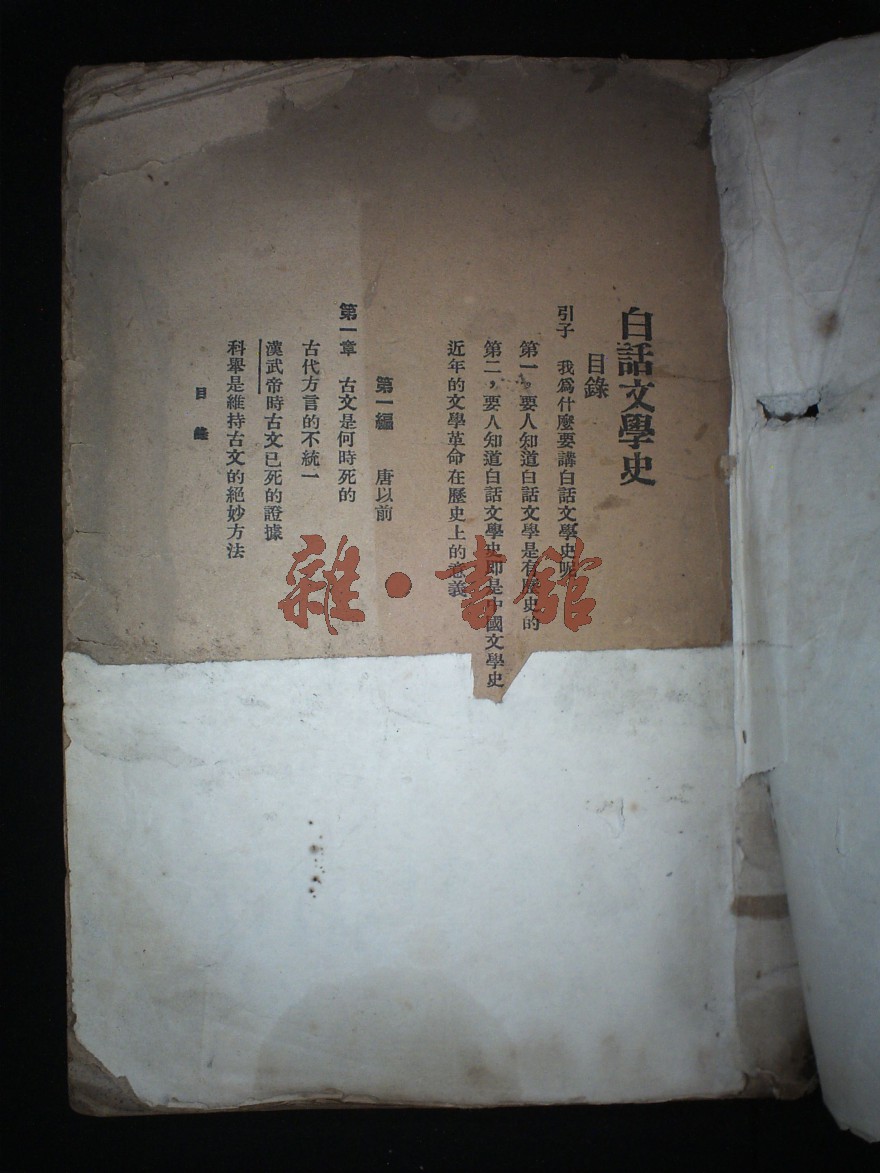 白話文學史
目錄
引子　我爲什麼要講白話文學史呢
第一，要人知道白話文學是有歷史的
第二，要人知道白話文學史即是中國文學史
近年的文學革命在歷史上的意義
第一編　唐以前
第一章　古文是何時死的
古代方言的不統一
漢武帝時古文已死的證據
科舉是維持古文的絕妙方法
目錄
雜·書館